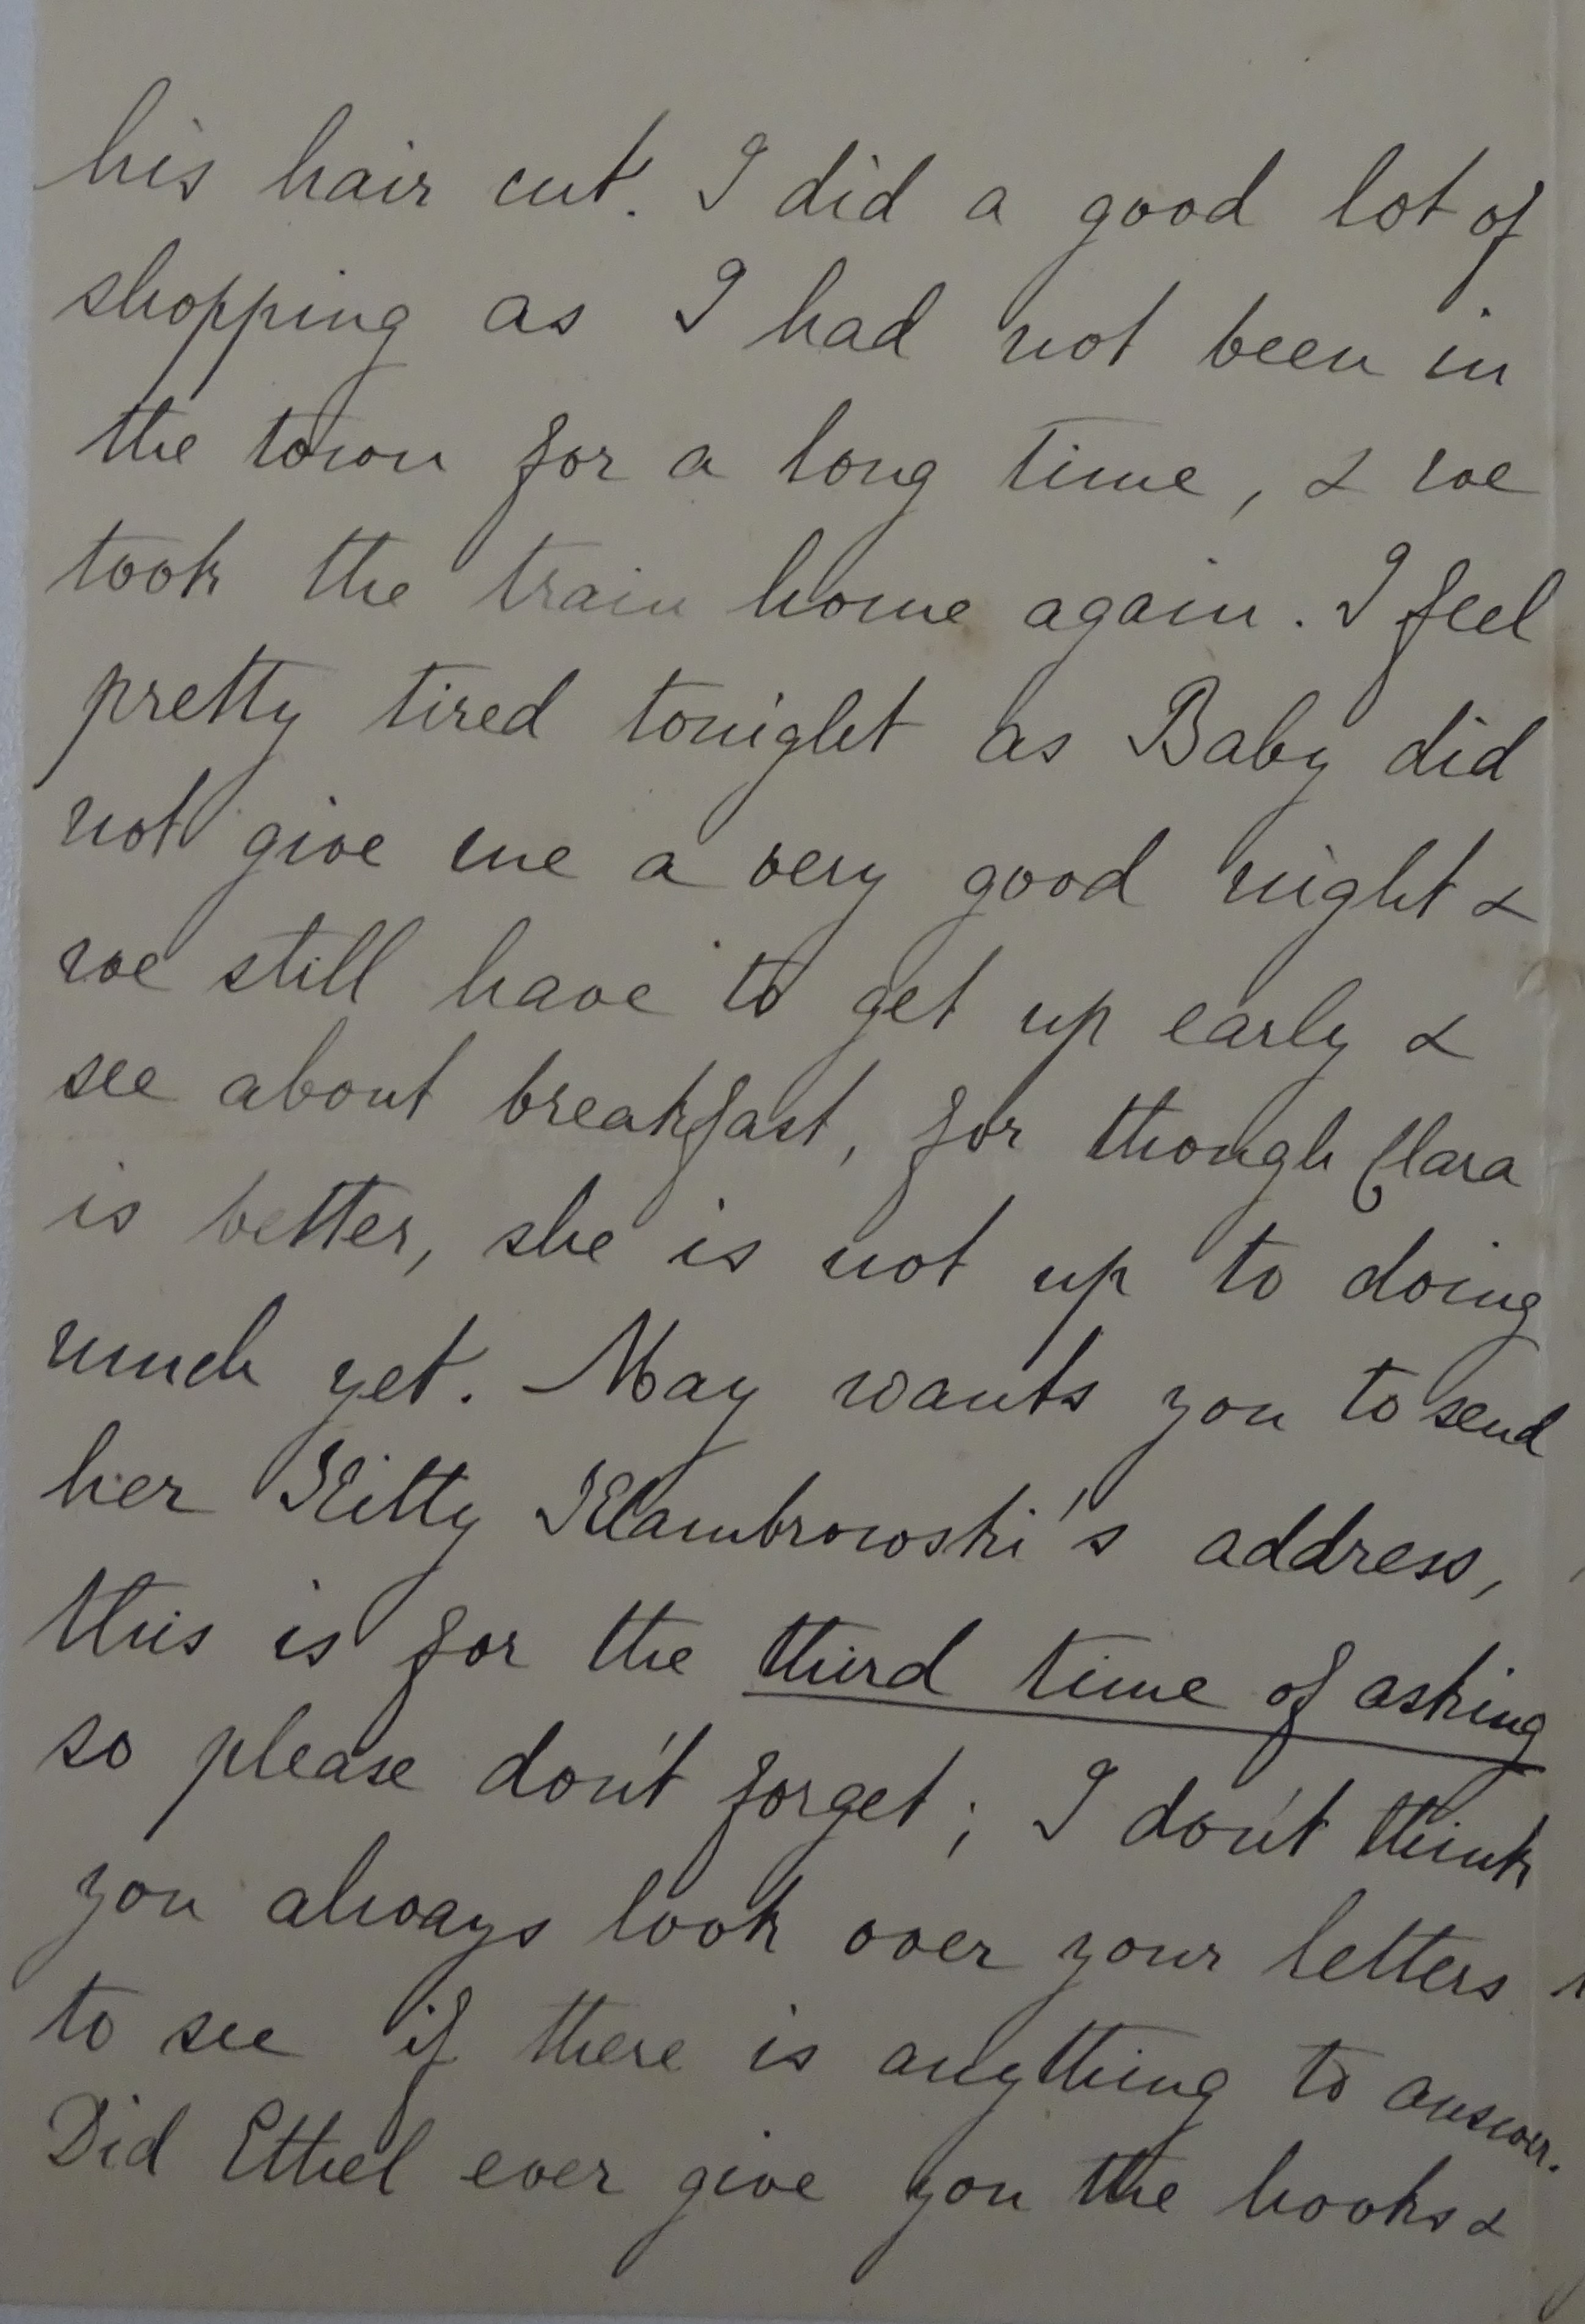 his hair cut. I did a good lot of
shopping as I had not been in
the town for a long time, & we
took the train home again. I feel
pretty tired tonight as Baby did
not give me a very good night &
we still have to get up early &
see about breakfast, for though Clara
is better, she is not up to doing
much yet. May wants you to send
her Kitty Klambrowski's address,
this is for the third time of asking
so please don't forget; I don't think
you always look over your letters
to see if there is anything to answer.
Did Ethel ever give you the hooks &